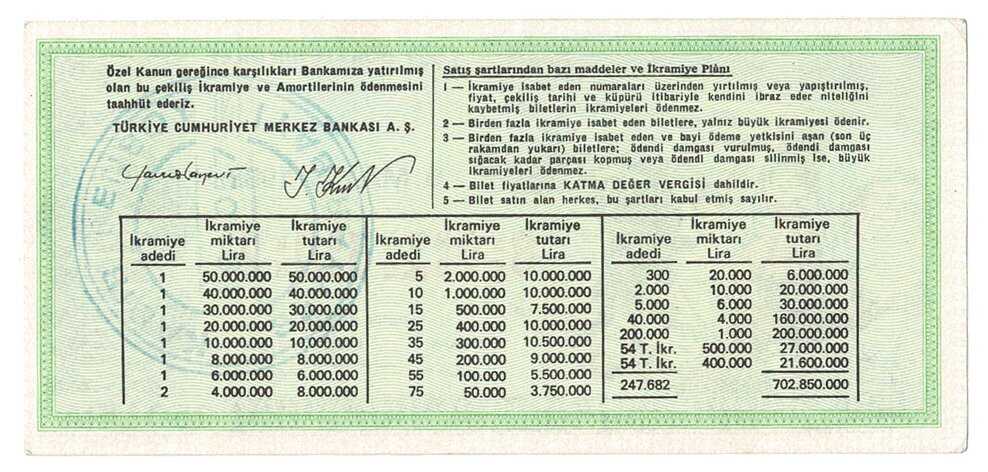 Özel Kanun gereğince karşılıkları Bankamıza yatırılmış
olan bu çekiliş İkramiye ve Amortilerinin ödenmesini
taahhüt ederiz.
TÜRKİYE CUMHURİYET MERKEZ BANKASI A. Ş.
Satış şartlarından bazı maddeler ve İkramiye Plânı
1 — İkramiye isabet eden numaraları üzerinden yırtılmış veya yapıştırılmış,
fiyat, çekiliş tarihi ve küpürü itibariyle kendini ibraz eder niteliğini
kaybetmiş biletlerin ikramiyeleri ödenmez.
2 — Birden fazla ikramiye isabet eden biletlere, yalnız büyük ikramiyesi ödenir.
3 — Birden fazla ikramiye isabet eden ve bayi ödeme yetkisini aşan (son üç
rakamdan yukarı) biletlere; ödendi damgası vurulmuş, ödendi damgası
sığacak kadar parçası kopmuş veya ödendi damgası silinmiş ise, büyük
ikramiyeleri ödenmez.
4 — Bilet fiyatlarına KATMA DEĞER VERGİSİ dahildir.
5 — Bilet satın alan herkes, bu şartları kabul etmiş sayılır.
İkramiye adedi İkramiye miktarı Lira İkramiye tutarı Lira
1 50.000.000 50.000.000
1 40.000.000 40.000.000
1 30.000.000 30.000.000
1 20.000.000 20.000.000
1 10.000.000 10.000.000
1 8.000.000 8.000.000
1 6.000.000 6.000.000
2 4.000.000 8.000.000
İkramiye adedi İkramiye miktarı Lira İkramiye tutarı Lira
5 2.000.000 10.000.000
10 1.000.000 10.000.000
15 500.000 7.500.000
25 400.000 10.000.000
35 300.000 10.500.000
45 200.000 9.000.000
55 100.000 5.500.000
75 50.000 3.750.000
İkramiye adedi İkramiye miktarı Lira İkramiye tutarı Lira
300 20.000 6.000.000
2.000 10.000 20.000.000
5.000 6.000 30.000.000
40.000 4.000 160.000.000
200.000 1.000 200.000.000
54 T. İkr. 500.000 27.000.000
54 T. İkr. 400.000 21.600.000
247.682 702.850.000